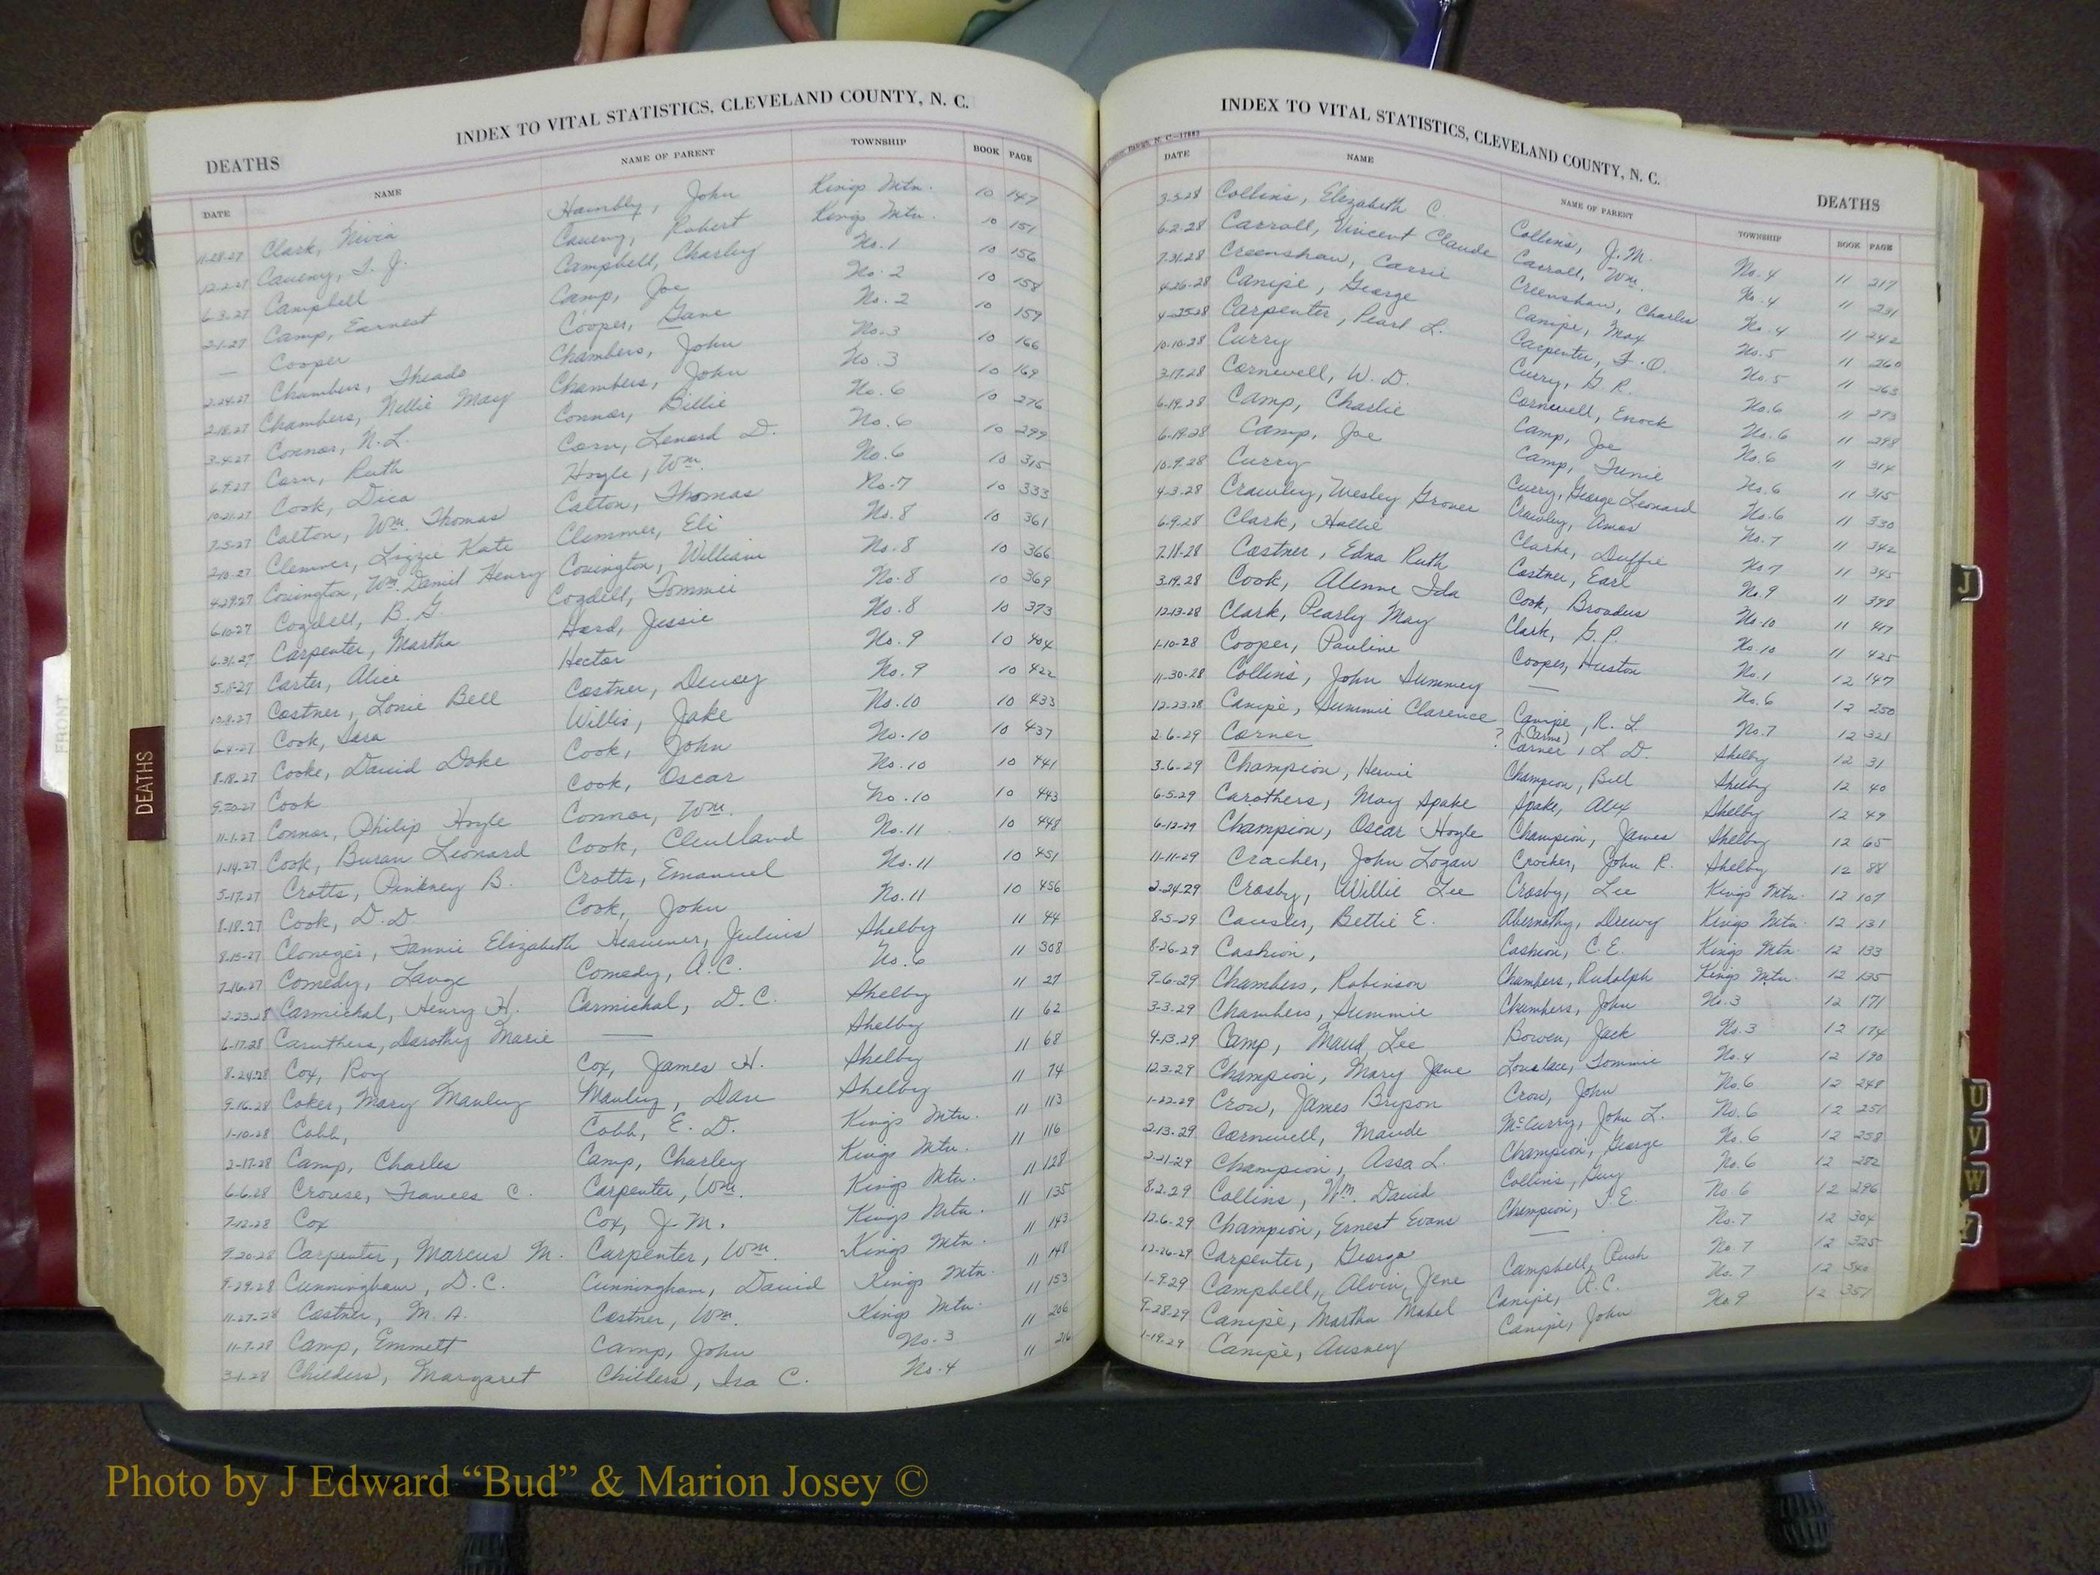 INDEX TO VITAL STATISTICS, CLEVELAND COUNTY, N. C.
DEATHS
DATE NAME NAME OF PARENT TOWNSHIP BOOK PAGE
11-28-27 Clark, Nivia Hambly, John Kings Mtn. 10 147
12-2-27 Caveny, T. J. Caveny, Robert Kings Mtn. 10 151
6-3-27 Campbell Campbell, Charley No. 1 10 156
2-1-27 Camp, Earnest Camp, Joe No. 2 10 158
— Cooper Cooper, Gane No. 2 10 159
2-24-27 Chambers, Theado Chambers, John No. 3 10 166
2-18-27 Chambers, Nellie May Chambers, John No. 3 10 169
3-4-27 Connor, N. L. Connor, Billie No. 6 10 276
6-9-27 Corn, Ruth Corn, Lenard D. No. 6 10 299
10-21-27 Cook, Dica Hoyle, Wm. No. 6 10 315
7-5-27 Calton, Wm. Thomas Calton, Thomas No. 7 10 333
2-10-27 Clemmer, Lizzie Kate Clemmer, Eli No. 8 10 361
4-29-27 Covington, Wm. Daniel Henry Covington, William No. 8 10 366
6-10-27 Cogdell, B. G. Cogdell, Tommie No. 8 10 369
6-31-27 Carpenter, Martha Hord, Jessie No. 8 10 373
5-1-27 Carter, Alice Hector No. 9 10 404
10-9-27 Costner, Lonie Bell Costner, Dewey No. 9 10 422
6-4-27 Cook, Sara Willis, Jake No. 10 10 433
8-18-27 Cooke, David Doke Cook, John No. 10 10 437
9-30-27 Cook Cook, Oscar No. 10 10 441
11-1-27 Connor, Philip Hoyle Connor, Wm. No. 10 10 443
1-14-27 Cook, Buran Leonard Cook, Clevelland No. 11 10 448
5-17-27 Crotts, Pinkney B. Crotts, Emanuel No. 11 10 451
8-18-27 Cook, D. D. Cook, John No. 11 10 456
8-15-27 Cloneger, Fannie Elizabeth Heavener, Julius Shelby 11 44
7-16-27 Comedy, Lauge Comedy, A. C. No. 6 11 308
2-23-28 Carmichal, Henry H. Carmickal, D. C. Shelby 11 27
6-17-28 Caruthers, Dorothy Marie — Shelby 11 62
8-24-28 Cox, Roy Cox, James H. Shelby 11 68
9-16-28 Coker, Mary Manley Manley, Dan Shelby 11 74
1-10-28 Cobb, Cobb, E. D. Kings Mtn. 11 113
2-17-28 Camp, Charles Camp, Charley Kings Mtn. 11 116
6-6-28 Crouse, Frances C. Carpenter, Wm. Kings Mtn. 11 128
7-12-28 Cox Cox, J. M. Kings Mtn. 11 135
9-20-28 Carpenter, Marcus M. Carpenter, Wm. Kings Mtn. 11 143
9-29-28 Cunningham, D. C. Cunningham, David Kings Mtn. 11 148
11-27-28 Costner, M. A. Costner, Wm. Kings Mtn. 11 153
11-7-28 Camp, Emmett Camp, John No. 3 11 206
3-1-28 Childers, Margaret Childers, Ira C. No. 4 11 216
INDEX TO VITAL STATISTICS, CLEVELAND COUNTY, N. C.
DEATHS
DATE NAME NAME OF PARENT TOWNSHIP BOOK PAGE
3-5-28 Collins, Elizabeth C. Collins, J. M. No. 4 11 217
6-2-28 Carroll, Vincent Claude Carroll, Wm. No. 4 11 231
7-31-28 Creenshaw, Carrie Creenshaw, Charles No. 4 11 242
4-26-28 Canipe, George Canipe, Max No. 5 11 260
4-25-28 Carpenter, Pearl L. Carpenter, F. O. No. 5 11 263
10-10-28 Curry Curry, G. R. No. 6 11 273
3-17-28 Cornwell, W. D. Cornwell, Enock No. 6 11 298
6-19-28 Camp, Charlie Camp, Joe No. 6 11 314
6-19-28 Camp, Joe Camp, Tunie No. 6 11 315
10-9-28 Curry Curry, George Leonard No. 6 11 330
4-3-28 Crawley, Wesley Grover Crawley, Amos No. 7 11 342
6-9-28 Clark, Hallie Clarke, Duffie No. 7 11 345
2-18-28 Costner, Edna Ruth Costner, Earl No. 9 11 398
3-19-28 Cook, Alenne Ida Cook, Broadus No. 10 11 417
12-13-28 Clark, Pearly May Clark, G. P. No. 10 11 425
1-10-28 Cooper, Pauline Cooper, Huston No. 1 12 147
11-30-28 Collins, John Summey — No. 6 12 250
12-23-28 Canipe, Summie Clarence Canipe, R. L. No. 7 12 321
2-6-29 Corner ? (Carne) Corner, L. D. Shelby 12 31
3-6-29 Champion, Hervie Champion, Bill Shelby 12 40
6-5-29 Carothers, May Spake Spake, Alex Shelby 12 49
6-12-29 Champion, Oscar Hoyle Champion, James Shelby 12 65
11-11-29 Cracker, John Logan Crocker, John R. Shelby 12 88
2-24-29 Crosby, Willie Lee Crosby, Lee Kings Mtn. 12 107
8-5-29 Causler, Bettie E. Abernathy, Drewy Kings Mtn. 12 131
8-26-29 Cashion, Cashion, C. E. Kings Mtn 12 133
9-6-29 Chambers, Robinson Chambers, Rudolph Kings Mtn. 12 135
3-3-29 Chambers, Summie Chambers, John No. 3 12 171
4-13-29 Camp, Maud Lee Bowen, Jack No. 3 12 174
12-3-29 Champion, Mary Jane Lovelace, Tommie No. 4 12 190
1-22-29 Crow, James Bryson Crow, John No. 6 12 248
2-13-29 Cornwell, Maude McCurry, John L. No. 6 12 251
2-21-29 Champion, Assa L. Champion, George No. 6 12 258
8-2-29 Collins, Wm. David Collins, Guy No. 6 12 282
12-6-29 Champion, Ernest Evans Champion, T. E. No. 6 12 296
12-26-29 Carpenter, George — No. 7 12 304
1-9-29 Campbell, Alvin Jene Campbell, Rush No. 7 12 325
9-28-29 Canipe, Martha Mabel Canipe, R. C. No. 7 12 340
1-19-29 Canipe, Ausney Canipe, John No. 9 12 351
C
DEATHS
FRONT
J
U
V
W
Photo by J Edward “Bud” & Marion Josey ©